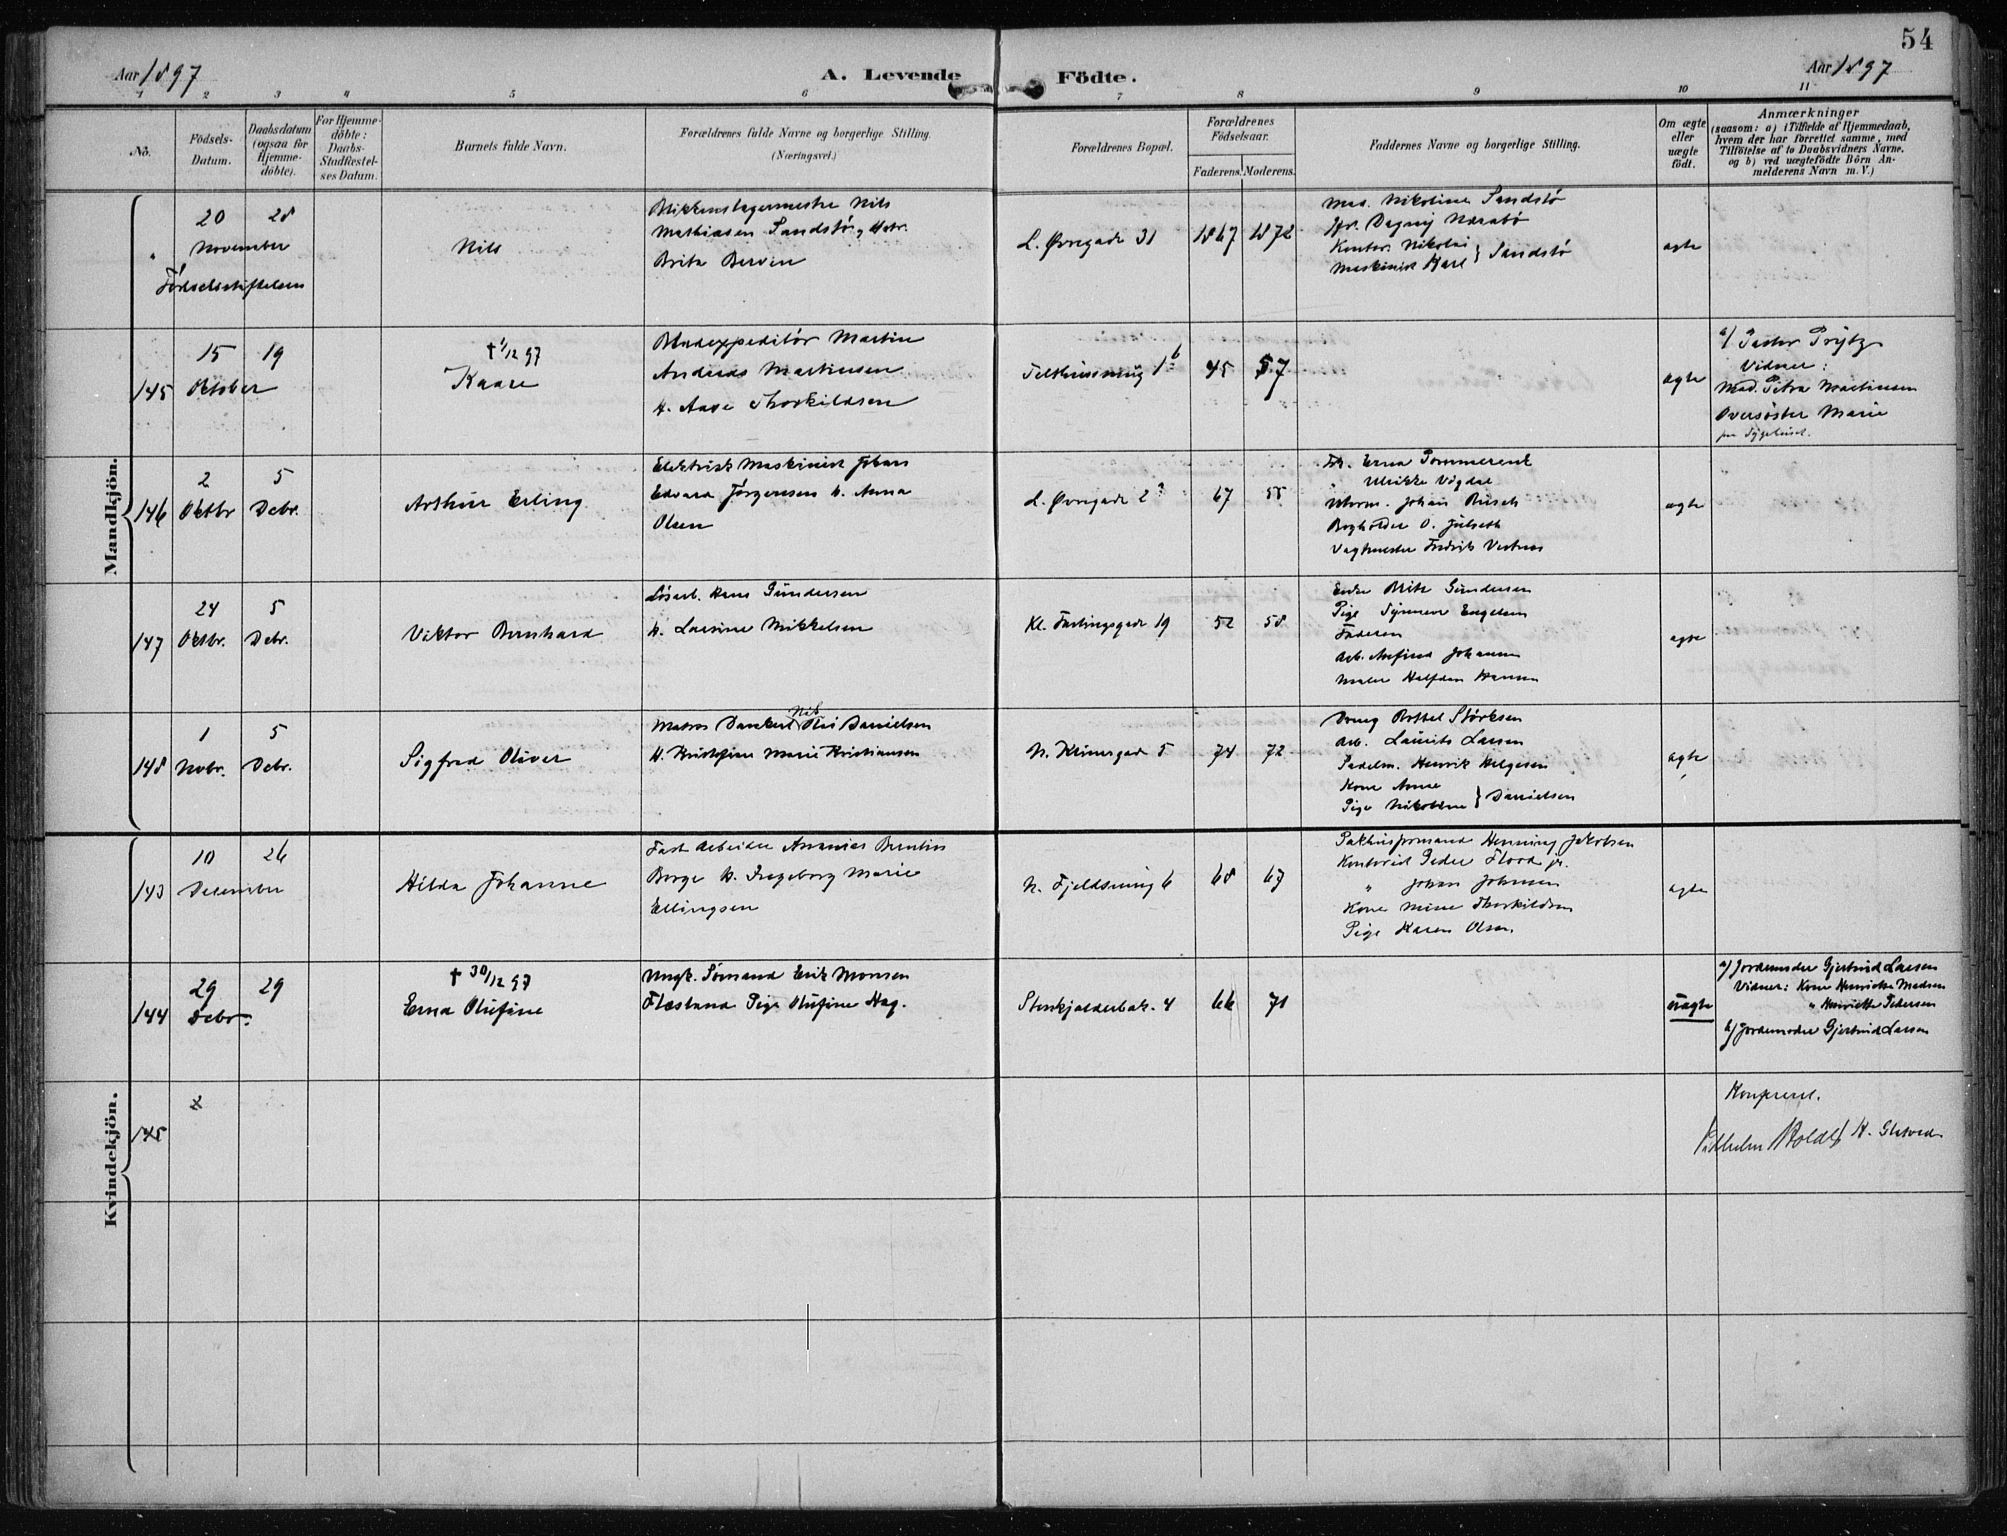 54
Aar 1897
A. Levende Födte.
Aar 1897
1 2 3 4 5 6 7 8 9 10 11
No.
Födsels-Datum.
Daabsdatum (ogsaa for Hjemmedöbte).
For Hjemmedöbte: Daabs-Stadfæstelses Datum.
Barnets fulde Navn.
Forældrenes fulde Navne og borgerlige Stilling.
(Næringsvei.)
Forældrenes Bopæl.
Forældrenes Födselsaar.
Faderens. Moderens.
Faddernes Navne og borgerlige Stilling.
Om ægte eller uægte födt.
Anmærkninger
(saasom: a) i Tilfælde af Hjemmedaab,
hvem der har forrettet samme, med
Tilföielse af to Daabsvidners Navne,
og b) ved uægtefödte Börn An-
melderens Navn m. V.)
Mandkjön.
" 20 28
November
Fødselsstiftelsen
Nils
Blikkenslagermester Nils
Mathiasen Sandstø, Hstr.
Brita Berven
L. Øvregade 31
1867 1872
Mad. Nikoline Sandstø
Dagny Nærabø
Kontor. Nikolai
Maskinist Karl } Sandstø
ægte
145
15 19
Oktober
† 1/12 97
Kaare
Martin
Andreas Martinsen
H. Aase Thorkildsen
1b
45 57
ægte
a) Pastor Prytz
Vidner:
Mad. Petra Martinsen
Oversøster Marie
paa Sygehuset.
146
2 5
Oktbr Debr.
Arthur Erling
Elektrisk Maskinist Johan
Edvard Jørgensen H. Anna
Olsen
L. Øvregade 2a
67 55
Frk. Erna Pommerenk
Ulrikke Vigdal
Uhrm. Johan Busch
Bogholder O. Julseth
Vagtmester Fredrik
ægte
147
24 5
Oktbr. Debr.
Viktor Bernhard
Løsarb. Hans Gundersen
H. Laurine Mikkelsen
Kl. Fastingsgade 19
52 58
Enke Brita Gundersen
Pige Synneve Engelsen
Faderen
Arb. Anfind Johannsen
Maler Halfdan Hansen
ægte
148
1 5
Novbr. Debr.
Sigfred Oliver
Matros Dankert Nils Olai Danielsen
H. Kristofine Marie Kristiansen
N. Korsgade 5
74 72
Dreng Bottel Størksen
Arb. Laurits Larsen
Sadelm. Henrik Helgesen
Kone Anne
Pige Nikoline } Danielsen
ægte
Kvindekjön.
143
10 26
December
Hilda Johanne
Fast Arbeider Ananias Berntin
Borge H. Ingeborg Marie
Ellingsen
N. Fjeldsmug 6
68 67
Pakhusformand Henning Jakobsen
Kontorist Peder Flood jr.
" Johan Johnsen
Kone Mina Thorkildsen
Pige Karen Olsen.
ægte
144
29 29
Debr.
† 30/12 97
Erna Olufine
Ungk. Sømand Erik Monsen
Flæsland Pige Olufine Hag.
Stenkjælderbak. 4
66 71
uægte
a) Jordemoder Gjertrud Larsen
Vidner: Kone Henrikke Madsen
" Henriette Pedersen
b) Jordemoder Gjertrud Larsen
145
Konfereret.
Vilhelm Holdt H.